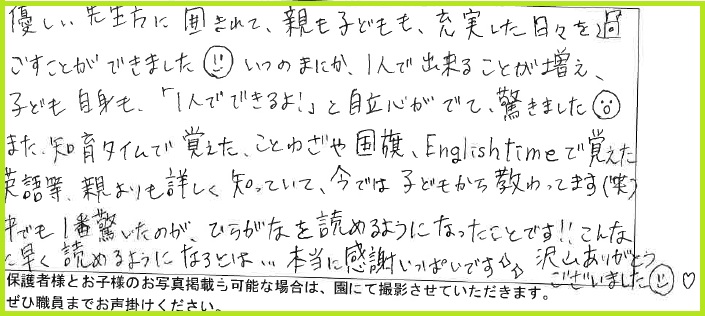 優しい先生方に囲まれて、親も子どもも、充実した日々を過
ごすことができました いつのまにか、1人で出来ることが増え、
子ども自身も、「1人でできるよ!」と自立心がでて、驚きました
また、知育タイムで覚えた、ことわざや国旗、Englishtimeで覚えた
英語等、親よりも詳しく知っていて、今では子どもから教わってます(笑)
中でも1番驚いたのが、ひらがなを読めるようになったことです!!こんな
に早く読めるようになるとは…本当に感謝いっぱいです 沢山ありがとう
ございました♡
保護者様とお子様のお写真掲載も可能な場合は、園にて撮影させていただきます。
ぜひ職員までお声掛けください。